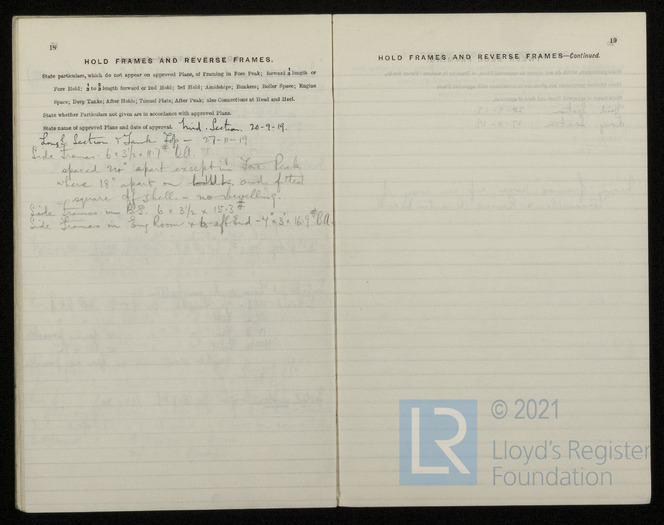 18
HOLD FRAMES AND REVERSE FRAMES.
State particulars, which do not appear on approved Plans, of Framing in Fore Peak; forward ⅕ length or
Fore Hold; ⅕ to length forward or 2nd Hold; 3rd Hold; Amidships; Bunkers; Boiler Space; Engine
Space; Deep Tanks; After Holds; Tunnel Flats; After Peak; also Connections at Head and Heel.
State whether Particulars not given are in accordance with approved Plans.
State name of approved Plans and date of approval. Mid. Section 20-9-19.
Long'l Section & Tank Top - 27-11-19
Side Frames. 6 x 3½ x
spaced 24" apart except in Fore Peak
where 18" apart on and fitted
square to shell. - no bevelling.
Side Frames in B.S. 6 x 3½ x 15.3#
Side Frames in Eng Room & to aft end - 4" x 3" x B.A.
19
HOLD FRAMES AND REVERSE FRAMES—Continued.
LR
© 2021
Lloyd's Register
Foundation